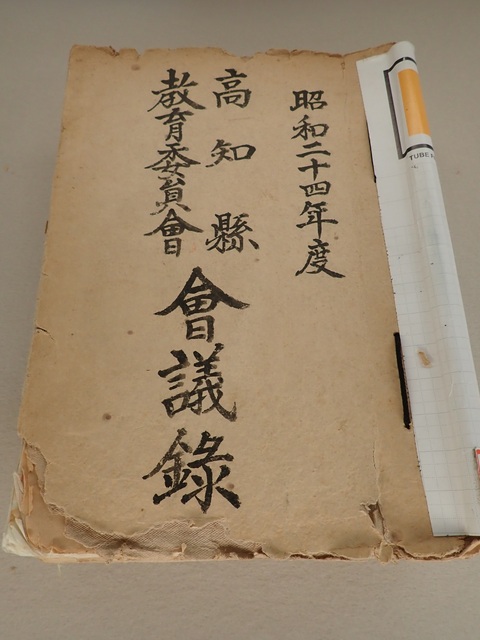 昭和二十四年度
高知縣
教育委員會
會議錄
TUBE